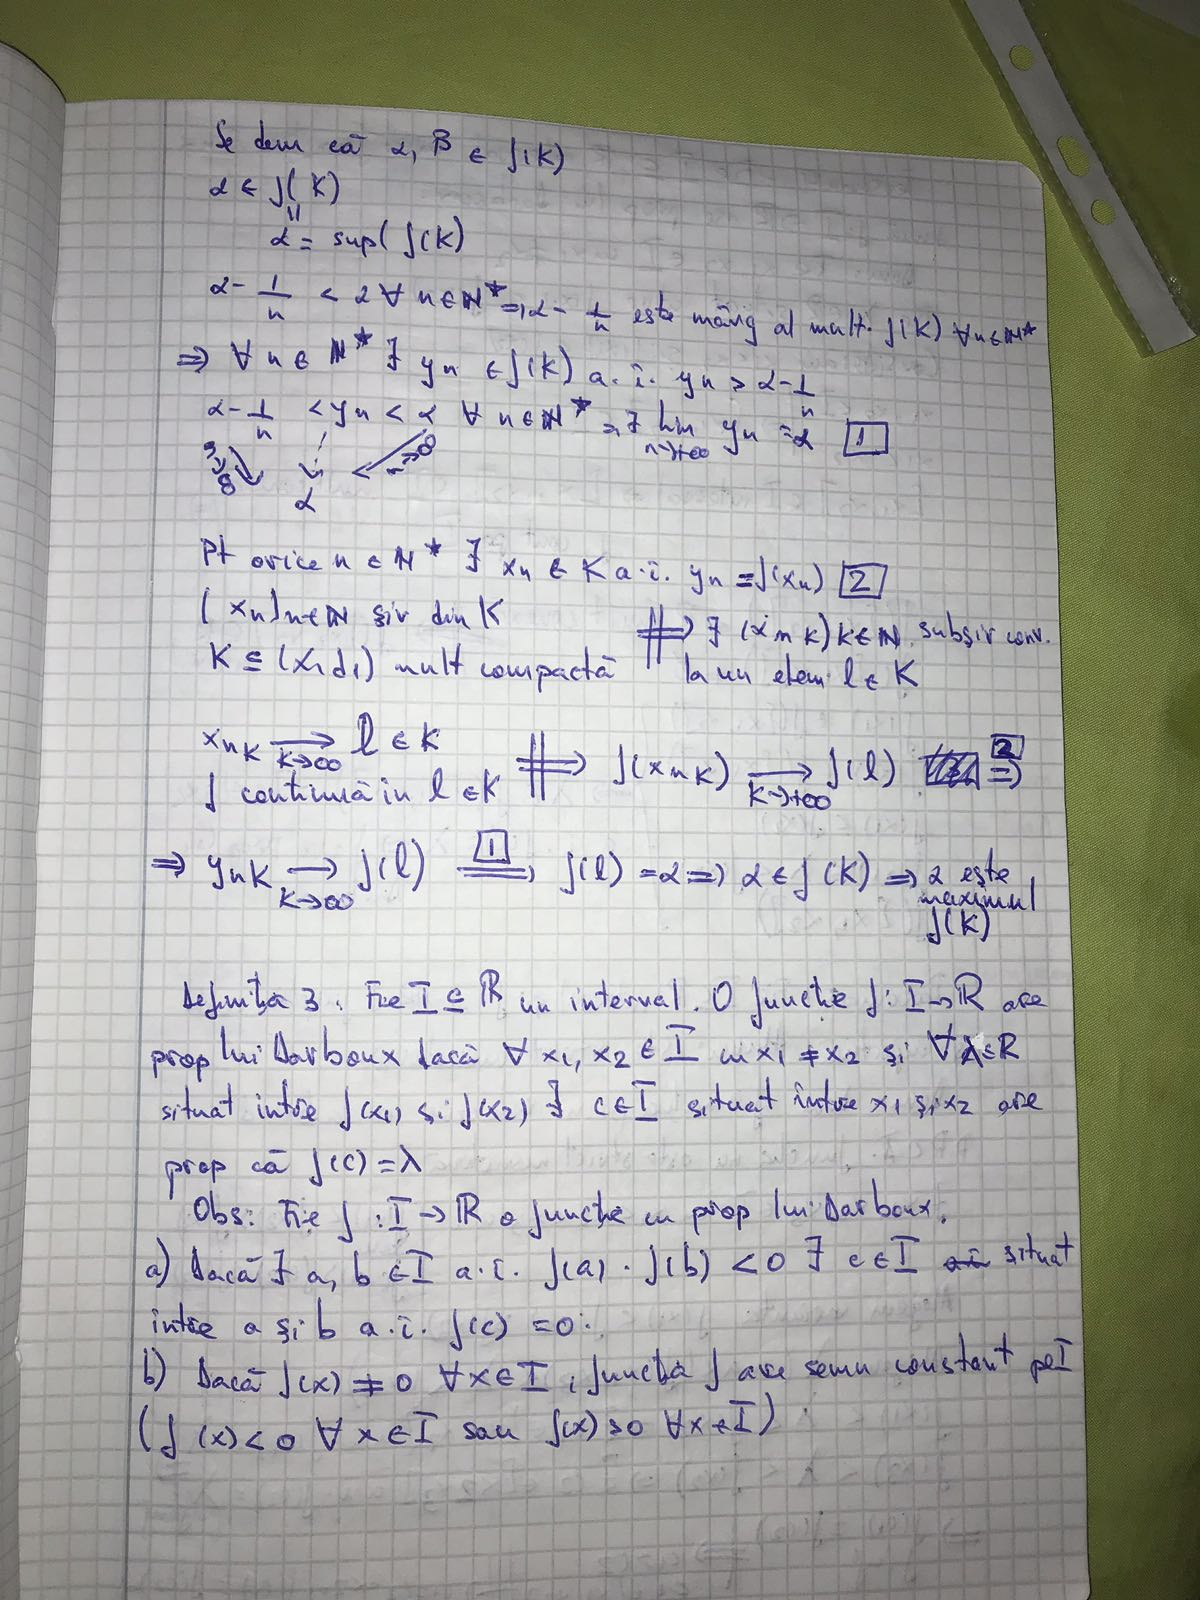 Se dem că α, β ∈ f(K)
α ∈ f(K)
=
α = sup( f(K)
α - 1/n < α ∀ n ∈ ℕ* ⇒ α - 1/n este marg al mult. f(K) ∀n∈ℕ*
⇒ ∀ n ∈ ℕ* ∃ yn ∈ f(K) a.î. yn > α - 1/n
α - 1/n < yn < α ∀ n ∈ ℕ* ⇒ ∃ lim n→+∞ yn = α [1]
n→∞ α n→∞
Pt orice n ∈ ℕ* ∃ xn ∈ K a.î. yn = f(xn) [2]
(xn)n∈ℕ șir din K ⇒ ∃ (xnk)k∈ℕ subșir conv.
K ⊆ (X, d1) mult compactă la un elem l ∈ K
xnk →k→∞ l ∈ K
⇒ f(xnk) →k→+∞ f(l) [2] ⇒
f continuă în l ∈ K
⇒ ynk →k→∞ f(l) [1] ⇒ f(l) = α ⇒ α ∈ f(K) ⇒ α este
maximul
f(K)
Definiția 3: Fie I ⊆ ℝ un interval. O funcție f: I → ℝ are
prop lui Darboux dacă ∀ x1, x2 ∈ I cu x1 ≠ x2 și ∀ λ∈R
situat între f(x1) și f(x2) ∃ c∈I situat între x1 și x2 are
prop că f(c) = λ
Obs: Fie f : I → ℝ o funcție cu prop lui Darboux.
a) Dacă ∃ a, b ∈ I a.î. f(a) · f(b) < 0 ∃ c ∈ I situat
între a și b a.î. f(c) = 0.
b) Dacă f(x) ≠ 0 ∀x∈I, funcția f are semn constant pe I
(f(x) < 0 ∀ x∈I sau f(x) > 0 ∀x∈I)